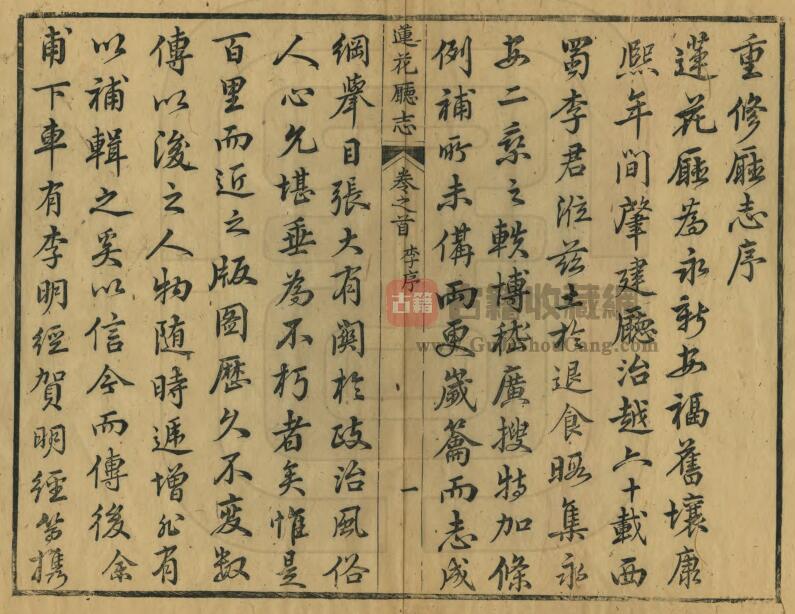 重修廳志序
蓮花廳為永新安福舊壤康
熙年間肇建廳治越六十載西
蜀李君涖茲土於退食暇集永
安二乘之軼博嵇廣搜特加條
例補所未備兩更歲籥而志成
蓮花廳志
卷之首 李序
一
綱舉目張大有關於政治風俗
人心允堪垂為不朽者矣惟是
百里而近之版圖歷久不變數
傳以後之人物隨時遞增非有
以補輯之奚以信今而傳後余
甫下車有李明經賀明經等攜
古籍
古籍收藏網